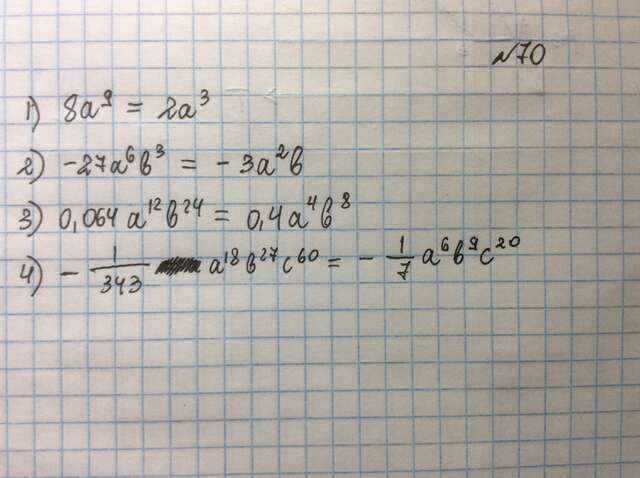 №70
1) 8a⁹ = 2a³
2) -27a⁶b³ = -3a²b
3) 0,064a¹²b²⁴ = 0,4a⁴b⁸
4) - 1/343 a¹⁸b²⁷c⁶⁰ = - 1/7 a⁶b⁹c²⁰